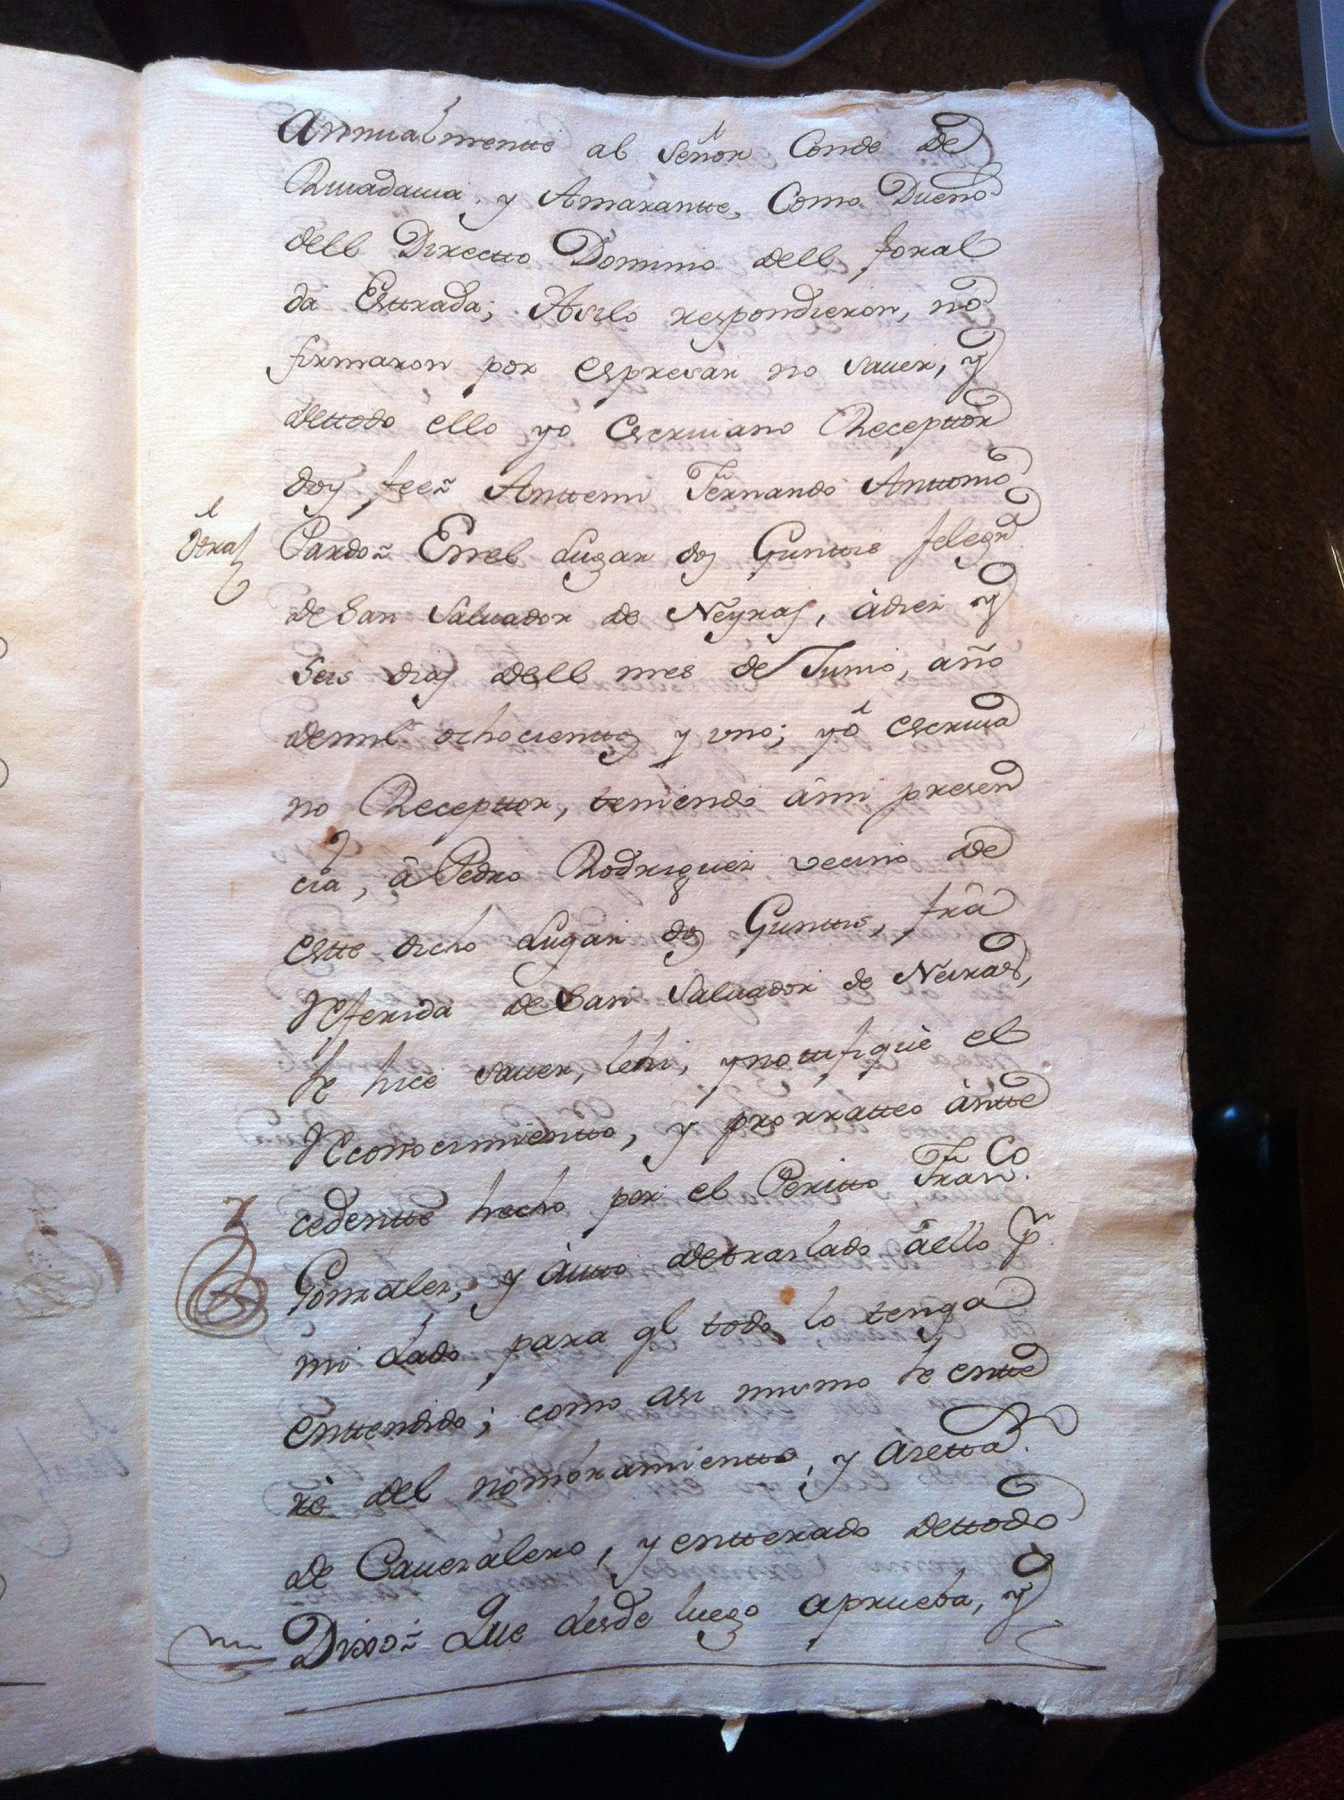 Annualmentte al Señor Conde de
Rivadavia y Amarantte, Como Dueño
dell Directto Dominio dell foral
da Esttrada; Asilo respondieron, no
firmaron por espresar no saver, y
dettodo ello yo escrivano Recepttor
doy feeñ Anttemi Fernando Anttonio
Otra Pardoñ Ennel Lugar dos Gunttis feleg.ª
de San Salvador de Neyras, àdiez y
seis dias dell mes de Junio, año
demil ochocienttos y uno; yo escriva
no Recepttor, teniendo àmi presen
cia, à Pedro Rodriguez vecino de
estte dicho Lugar dos Gunttis, frâ
Referida de San Salvador de Neiras,
le hice saver, lehi, ynottifiquè el
Reconocimientto, y prorratteo àntte
cedentte hecho por el Peritto Fran.co
Gonzalez, y àutto detraslado àello p.r
mi dado para ql todo lo tenga
enttendido; como asi mismo le entte
rè del nombramientto, y àzetta.n
de Cavezalero, y entterado dettodo
Dixoñ Que desde luego aprueba, y